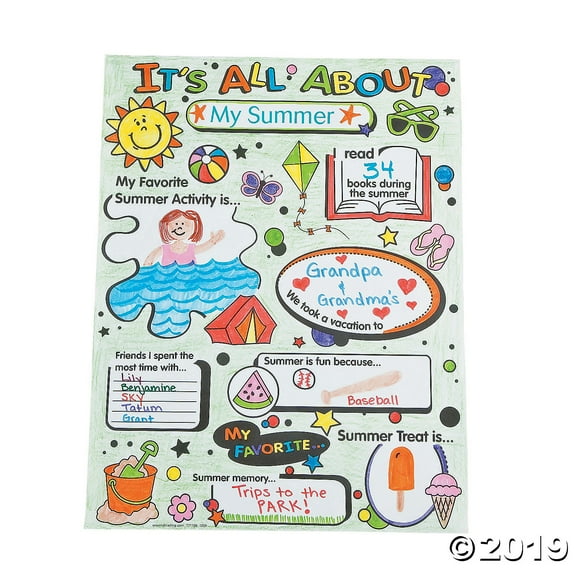 IT'S ALL ABOUT
My Summer
My Favorite
Summer Activity is...
I read
34
books during
the summer
Grandpa
&
Grandma's
We took a vacation to
Friends I spent the
most time with...
Lily
Benjamine
SKY
Tatum
Grant
Summer is fun because...
Baseball
MY
FAVORITE...
Summer Treat is...
Summer memory...
Trips to the
PARK!
©2019